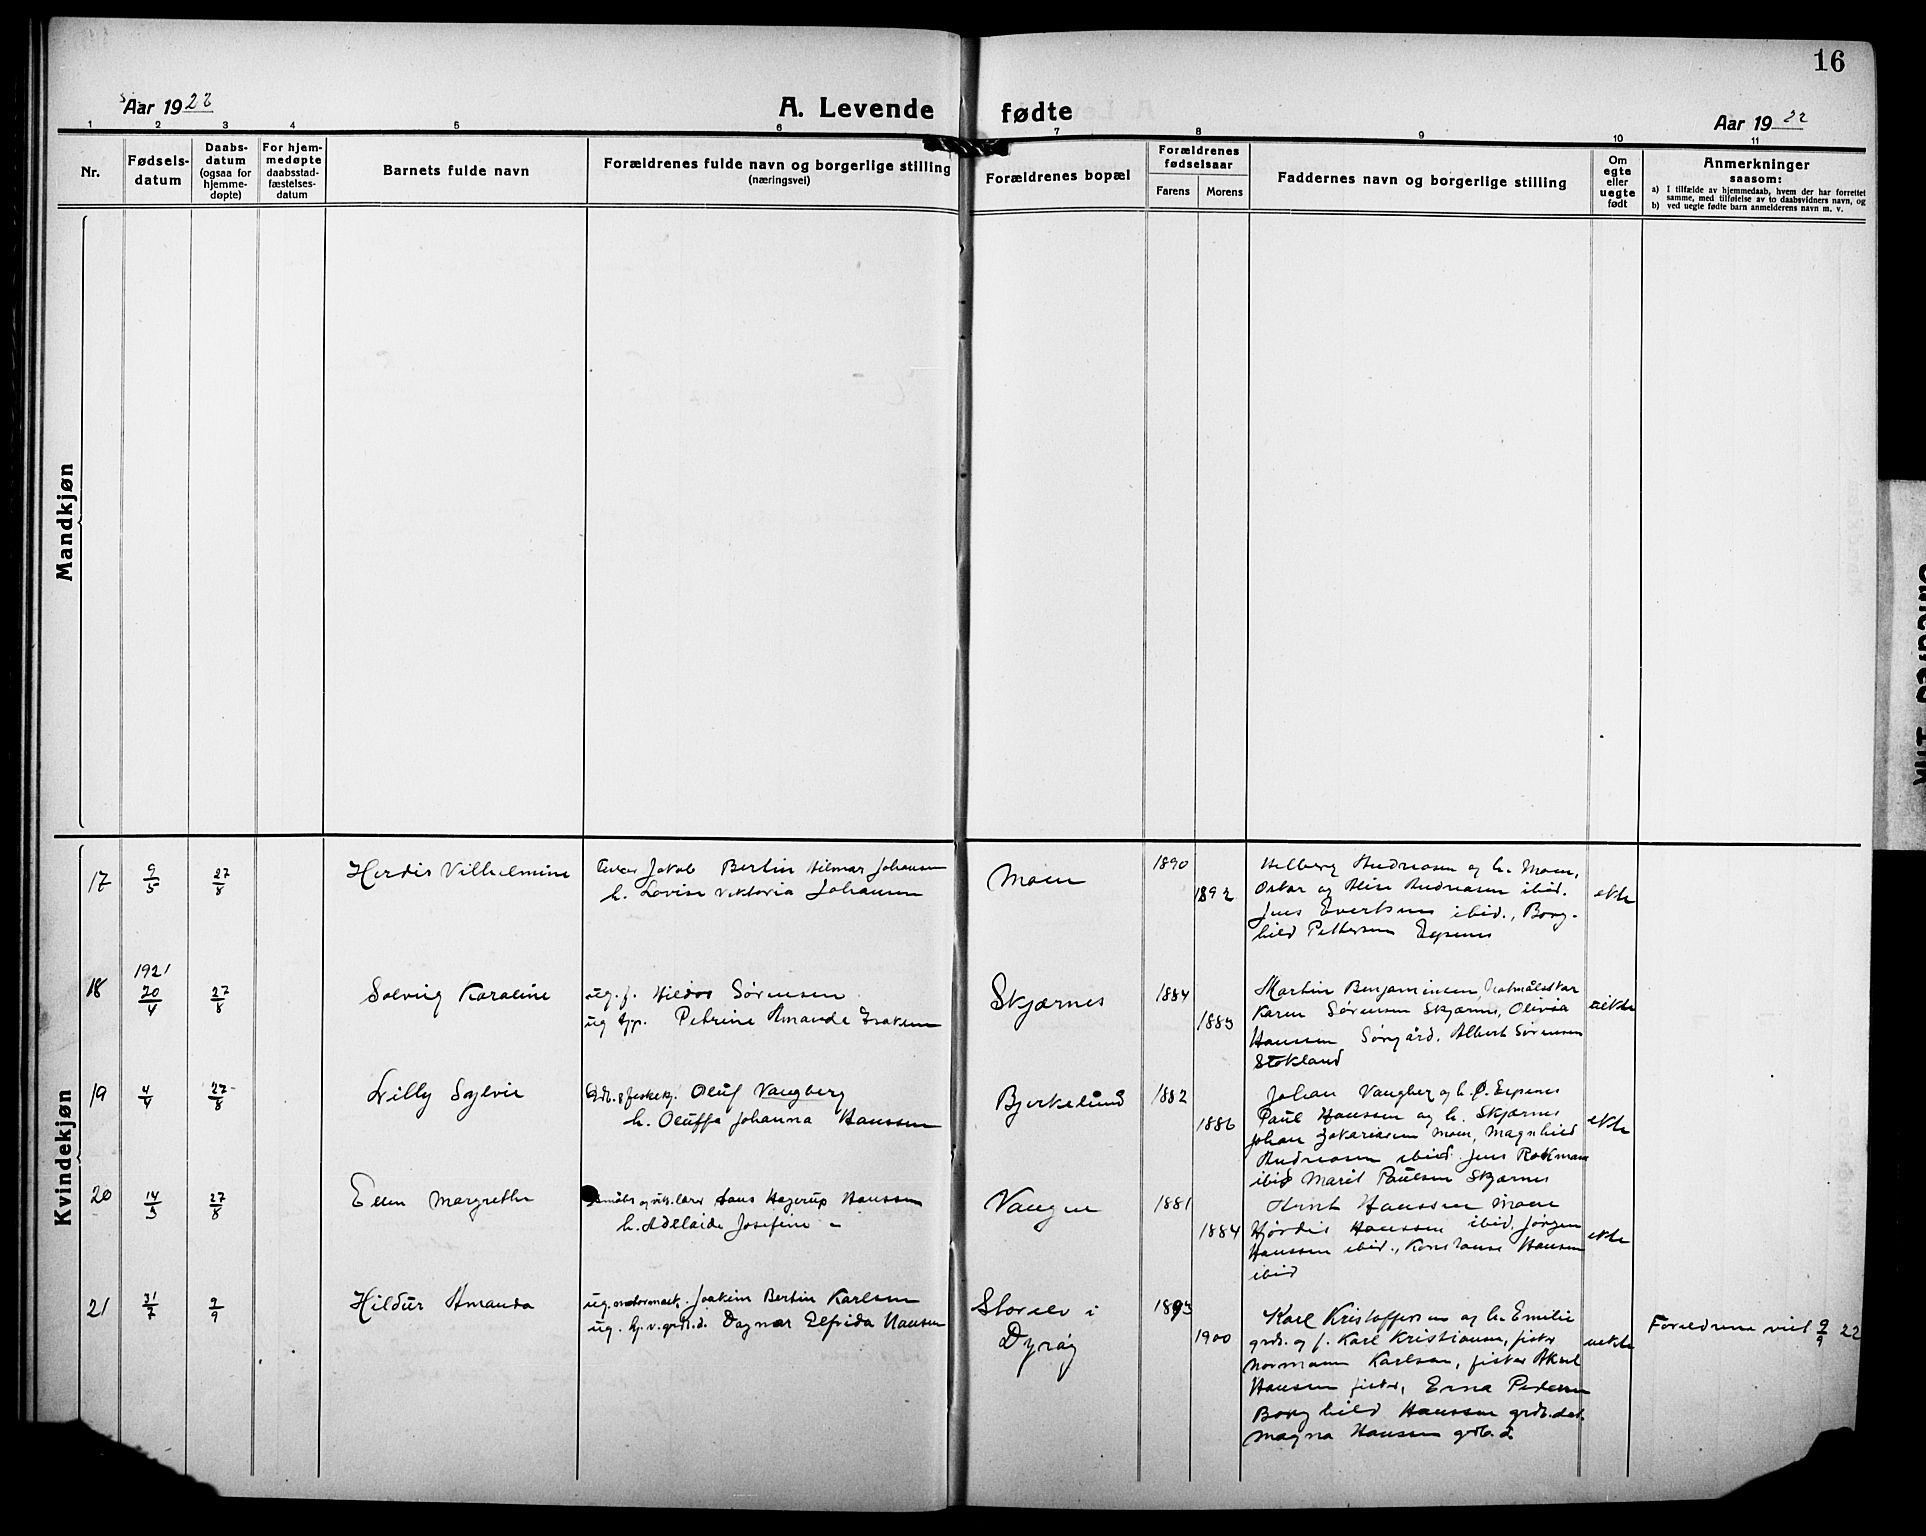 16
Aar 1922
A. Levende fødte
Aar 1922
1 2 3 4 5 6 7 8 9 10 11
Nr.
Fødsels-
datum
Daabs-
datum
(ogsaa for
hjemme-
døpte)
For hjem-
medøpte
daabsstad-
fæstelses-
datum
Barnets fulde navn
Forældrenes fulde navn og borgerlige stilling
(næringsvei)
Forældrenes bopæl
Forældrenes
fødselsaar
Farens
Morens
Faddernes navn og borgerlige stilling
Om
egte
eller
uegte
født
Anmerkninger
saasom:
a) I tilfælde av hjemmedaab, hvem der har forrettet
samme, med tilføielse av to daabsvidners navn, og
b) ved uegte fødte barn anmelderens navn m. v.
Mandkjøn
Kvindekjøn
17
9/5
27/8
Herdis Vilhelmine
Jakob Bertin Hilmar Johansen
h. Lovise Viktoria Johansen
Moen
1890
1892
Helberg Andreasen og h. Moen,
Oskar og Alise Andreasen ibid.
Jens Evertsen ibid., Borg-
hild Pettersen Espenes
ekte
18
1921
20/4
27/8
Solveig Karoline
ug. f. Hildor Sørensen
ug tjp. Petrine Amanda Isaksen
Skjærnes
1884
1883
Martin Benjaminsen,
Karen Sørensen Skjærnes, Olivia
Hanssen Sørgård. Albert Sørensen
Stokland
uekte
19
4/4
27/8
Lilly Sylvie
Grdb. & fiskekj. Oluf Vangberg
h. Oluffa Johanna Hanssen
Bjerkelund
1882
1886
Johan Vangberg og h. Ø. Espenes
Paul Hanssen og h. Skjærnes
Johan Zakariasen Moen, Magnhild
Andreasen ibid. Jens
ibid Marit Paulsen Skjærnes
ekte
20
14/5
27/8
Ellen Margrethe
Hans Hagerup Hanssen
h. Adelaide Josefine -
Vangen
1881
1884
Hanssen Moen
Hjørdis Hanssen ibid, Jørgen
Hanssen ibid., Konstanse Hansen
ibid
ekte
21
31/7
9/9
Hildur Amanda
ug. motormask. Joakim Bertin Karlsen
ug. hj. v. grdb. d. Dagnar Elfrida Hansen
Storelv i
Dyrøy
1893
1900
Karl Kristoffersen og h. Emilie
grdb. og f. Karl Kristiansen, fisker
Normann Karlsen, fisker Aksel
Hansen fisker, Erna Pedersen
Borghild Hanssen grdb. dat.
Magna Hansen grdb. d.
uekte
Forældrene viet 9/9 22